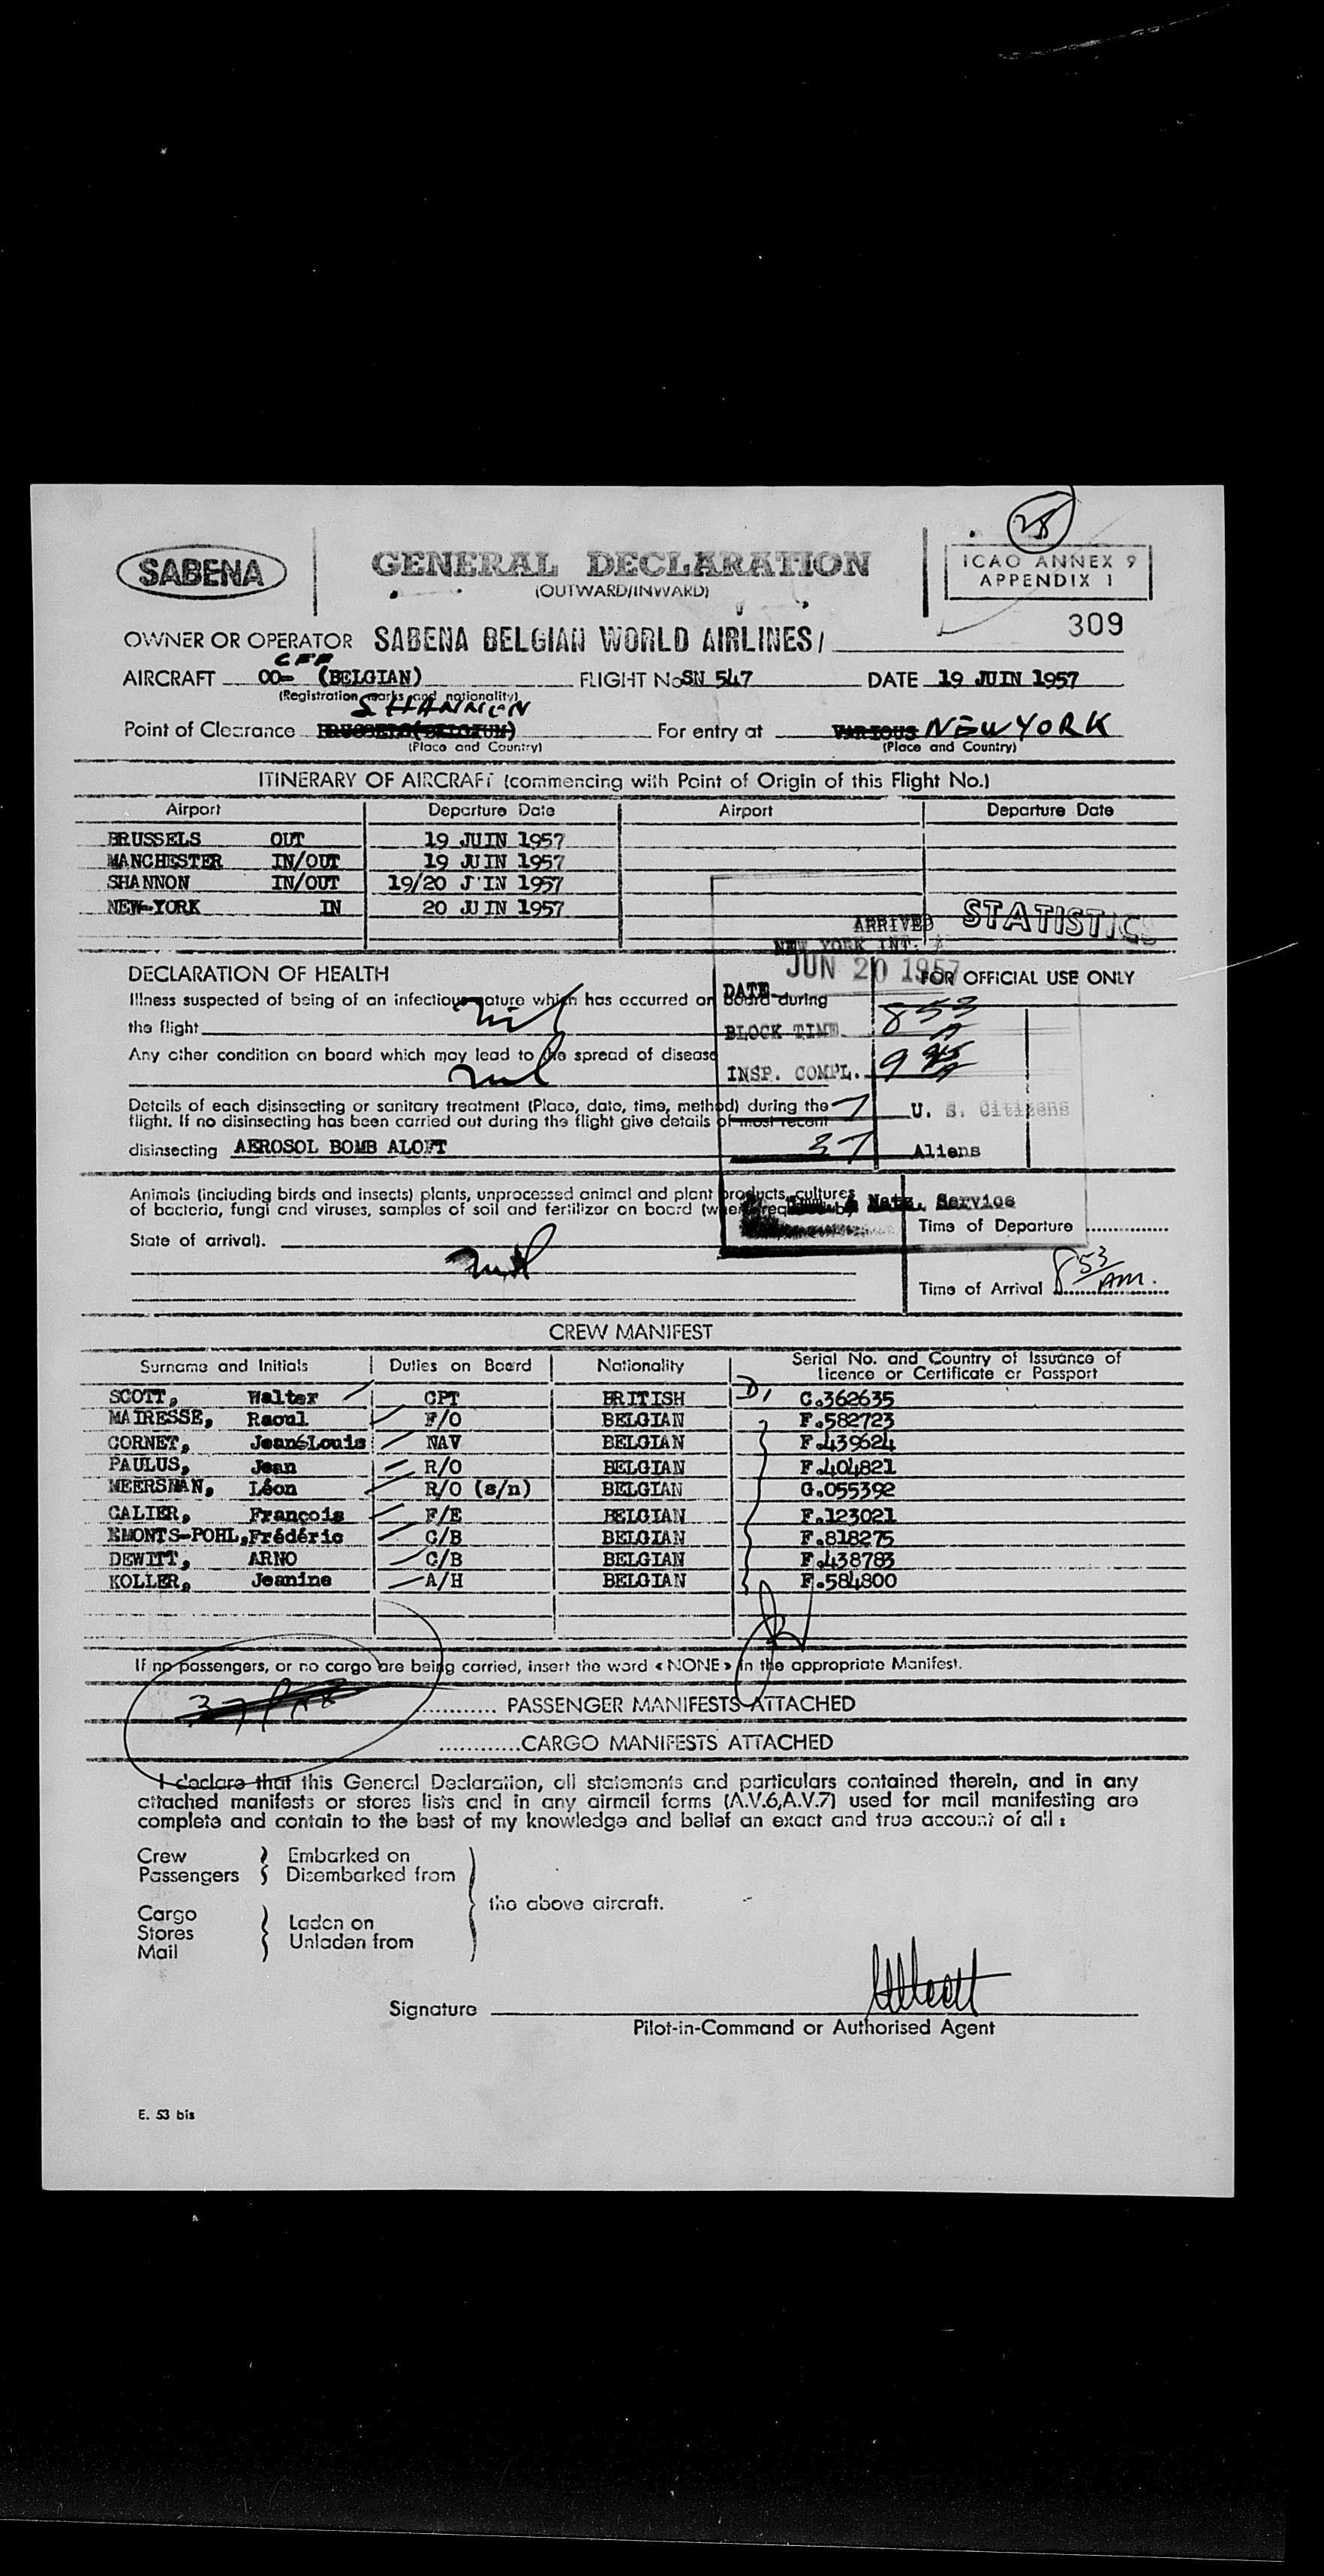 28
SABENA
GENERAL DECLARATION
(OUTWARD/INWARD)
ICAO ANNEX 9
APPENDIX 1
309
OWNER OR OPERATOR SABENA BELGIAN WORLD AIRLINES/
AIRCRAFT OO- (BELGIAN) FLIGHT No SN 547 DATE 19 JUIN 1957
(Registration marks and nationality)
SHANNON
Point of Clearance BRUSSELS (BELGIUM) For entry at VARIOUS NEW YORK
(Place and Country) (Place and Country)
ITINERARY OF AIRCRAFT (commencing with Point of Origin of this Flight No.)
Airport Departure Date Airport Departure Date
BRUSSELS OUT 19 JUIN 1957
MANCHESTER IN/OUT 19 JUIN 1957
SHANNON IN/OUT 19/20 J'IN 1957
NEW-YORK IN 20 JUIN 1957
STATISTICS
ARRIVED
NEW YORK INT. A
JUN 20 1957
DATE
BLOCK TIME 853 A
INSP. COMPL. 9
7 U. S. Citizens
37 Aliens
& Natz. Service
DECLARATION OF HEALTH
FOR OFFICIAL USE ONLY
Illness suspected of being of an infectious nature which has occurred on board during
the flight nil
Any other condition on board which may lead to the spread of disease
nil
Details of each disinsecting or sanitary treatment (Place, date, time, method) during the
flight. If no disinsecting has been carried out during the flight give details of most recent
disinsecting AEROSOL BOMB ALOFT
Animals (including birds and insects) plants, unprocessed animal and plant products, cultures
of bacteria, fungi and viruses, samples of soil and fertilizer on board (when required by
State of arrival).
nil
Time of Departure
Time of Arrival 853 AM.
CREW MANIFEST
Surname and Initials Duties on Board Nationality Serial No. and Country of Issuance of
Licence or Certificate or Passport
SCOTT, Walter CPT BRITISH C.362635
MAIRESSE, Raoul F/O BELGIAN F.582723
CORNET, Jean-Louis NAV BELGIAN F.439624
PAULUS, Jean R/O BELGIAN F.404821
MEERSMAN, Léon R/O (s/n) BELGIAN G.055392
CALIER, François F/E BELGIAN F.123021
EMONTS-POHL, Frédéric C/B BELGIAN F.818275
DEWITT, ARNO C/B BELGIAN F.438783
KOLLER, Jeanine A/H BELGIAN F.584800
If no passengers, or no cargo are being carried, insert the word « NONE » in the appropriate Manifest.
37 ............ PASSENGER MANIFESTS ATTACHED
............CARGO MANIFESTS ATTACHED
I declare that this General Declaration, all statements and particulars contained therein, and in any
attached manifests or stores lists and in any airmail forms (A.V.6,A.V.7) used for mail manifesting are
complete and contain to the best of my knowledge and belief an exact and true account of all :
Crew Embarked on
Passengers Disembarked from
the above aircraft.
Cargo
Stores Laden on
Mail Unladen from
Signature
Pilot-in-Command or Authorised Agent
E. 53 bis